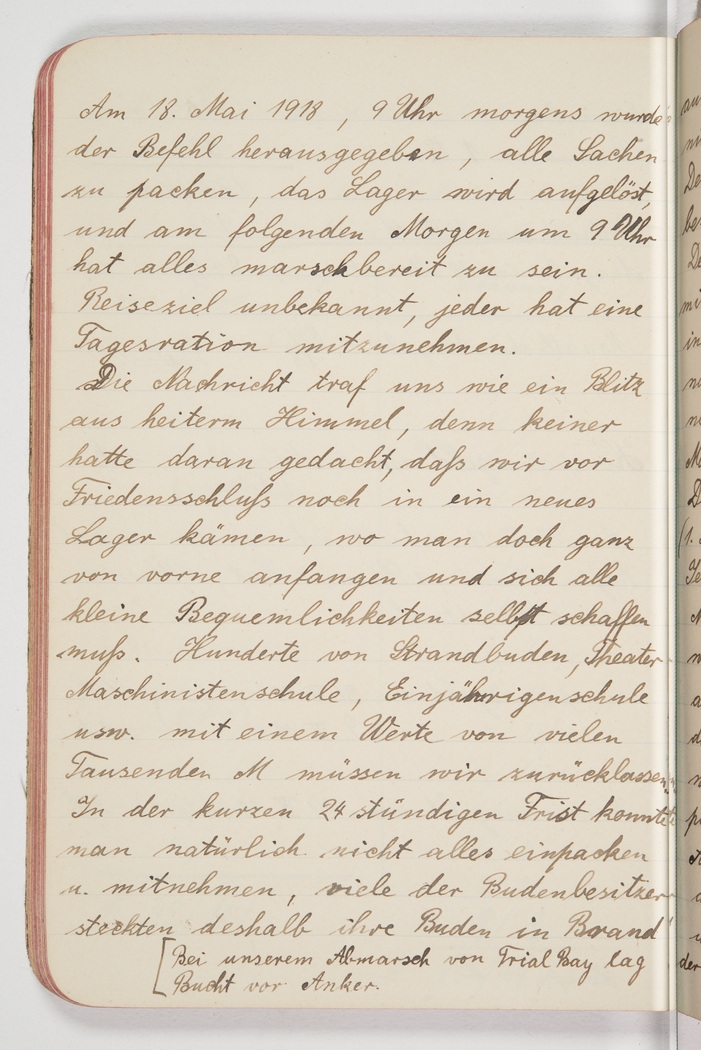 Am 18. Mai 1918, 9 Uhr morgens wurde
der Befehl herausgegeben, alle Sachen
zu packen, das Lager wird aufgelöst,
und am folgenden Morgen um 9 Uhr
hat alles marschbereit zu sein.
Reiseziel unbekannt, jeder hat eine
Tagesration mitzunehmen.
Die Nachricht traf uns wie ein Blitz
aus heiterm Himmel, denn keiner
hatte daran gedacht, daß wir vor
Friedensschluß noch in ein neues
Lager kämen, wo man doch ganz
von vorne anfangen und sich alle
kleine Bequemlichkeiten selbst schaffen
muß. Hunderte von Strandbuden, Theater
Maschinistenschule, Einjährigenschule
usw. mit einem Werte von vielen
Tausenden M müssen wir zurücklassen.
In der kurzen 24 stündigen Frist konnte
man natürlich nicht alles einpacken
u. mitnehmen, viele der Budenbesitzer
steckten deshalb ihre Buden in Brand
[Bei unserem Abmarsch von Trial Bay lag
Bucht vor Anker.